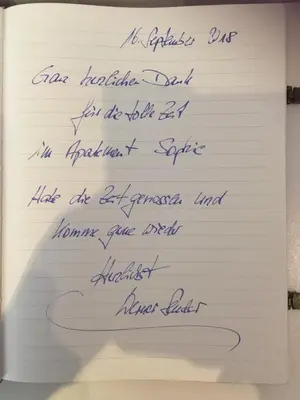 16. September 2018
Ganz herzlichen Dank
für die tolle Zeit
im Apartement Sophie
Habe die Zeit genossen und
komme gerne wieder
Herzlichst
Werner